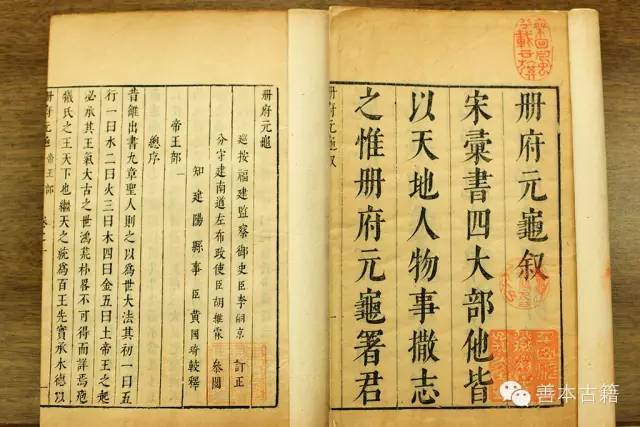 册府元龜叙
宋彙書四大部他皆
以天地人物事撒志
之惟册府元龜署君
册府元龜叙
一
册府元龜
巡按福建監察御史臣李嗣京 訂正
分守建南道左布政使臣胡維霖 叅閱
知建陽縣事臣黃國琦較釋
帝王部
總序
昔雒出書九章聖人則之以爲世大法其初一曰五
行一曰水二曰火三曰木四曰金五曰土帝王之起
必承其王氣大古之世鴻荒朴畧不可得而詳焉庖
犧氏之王天下也繼天之統爲百王先實承木德以
册府元龜 帝王部 卷之一
善本古籍